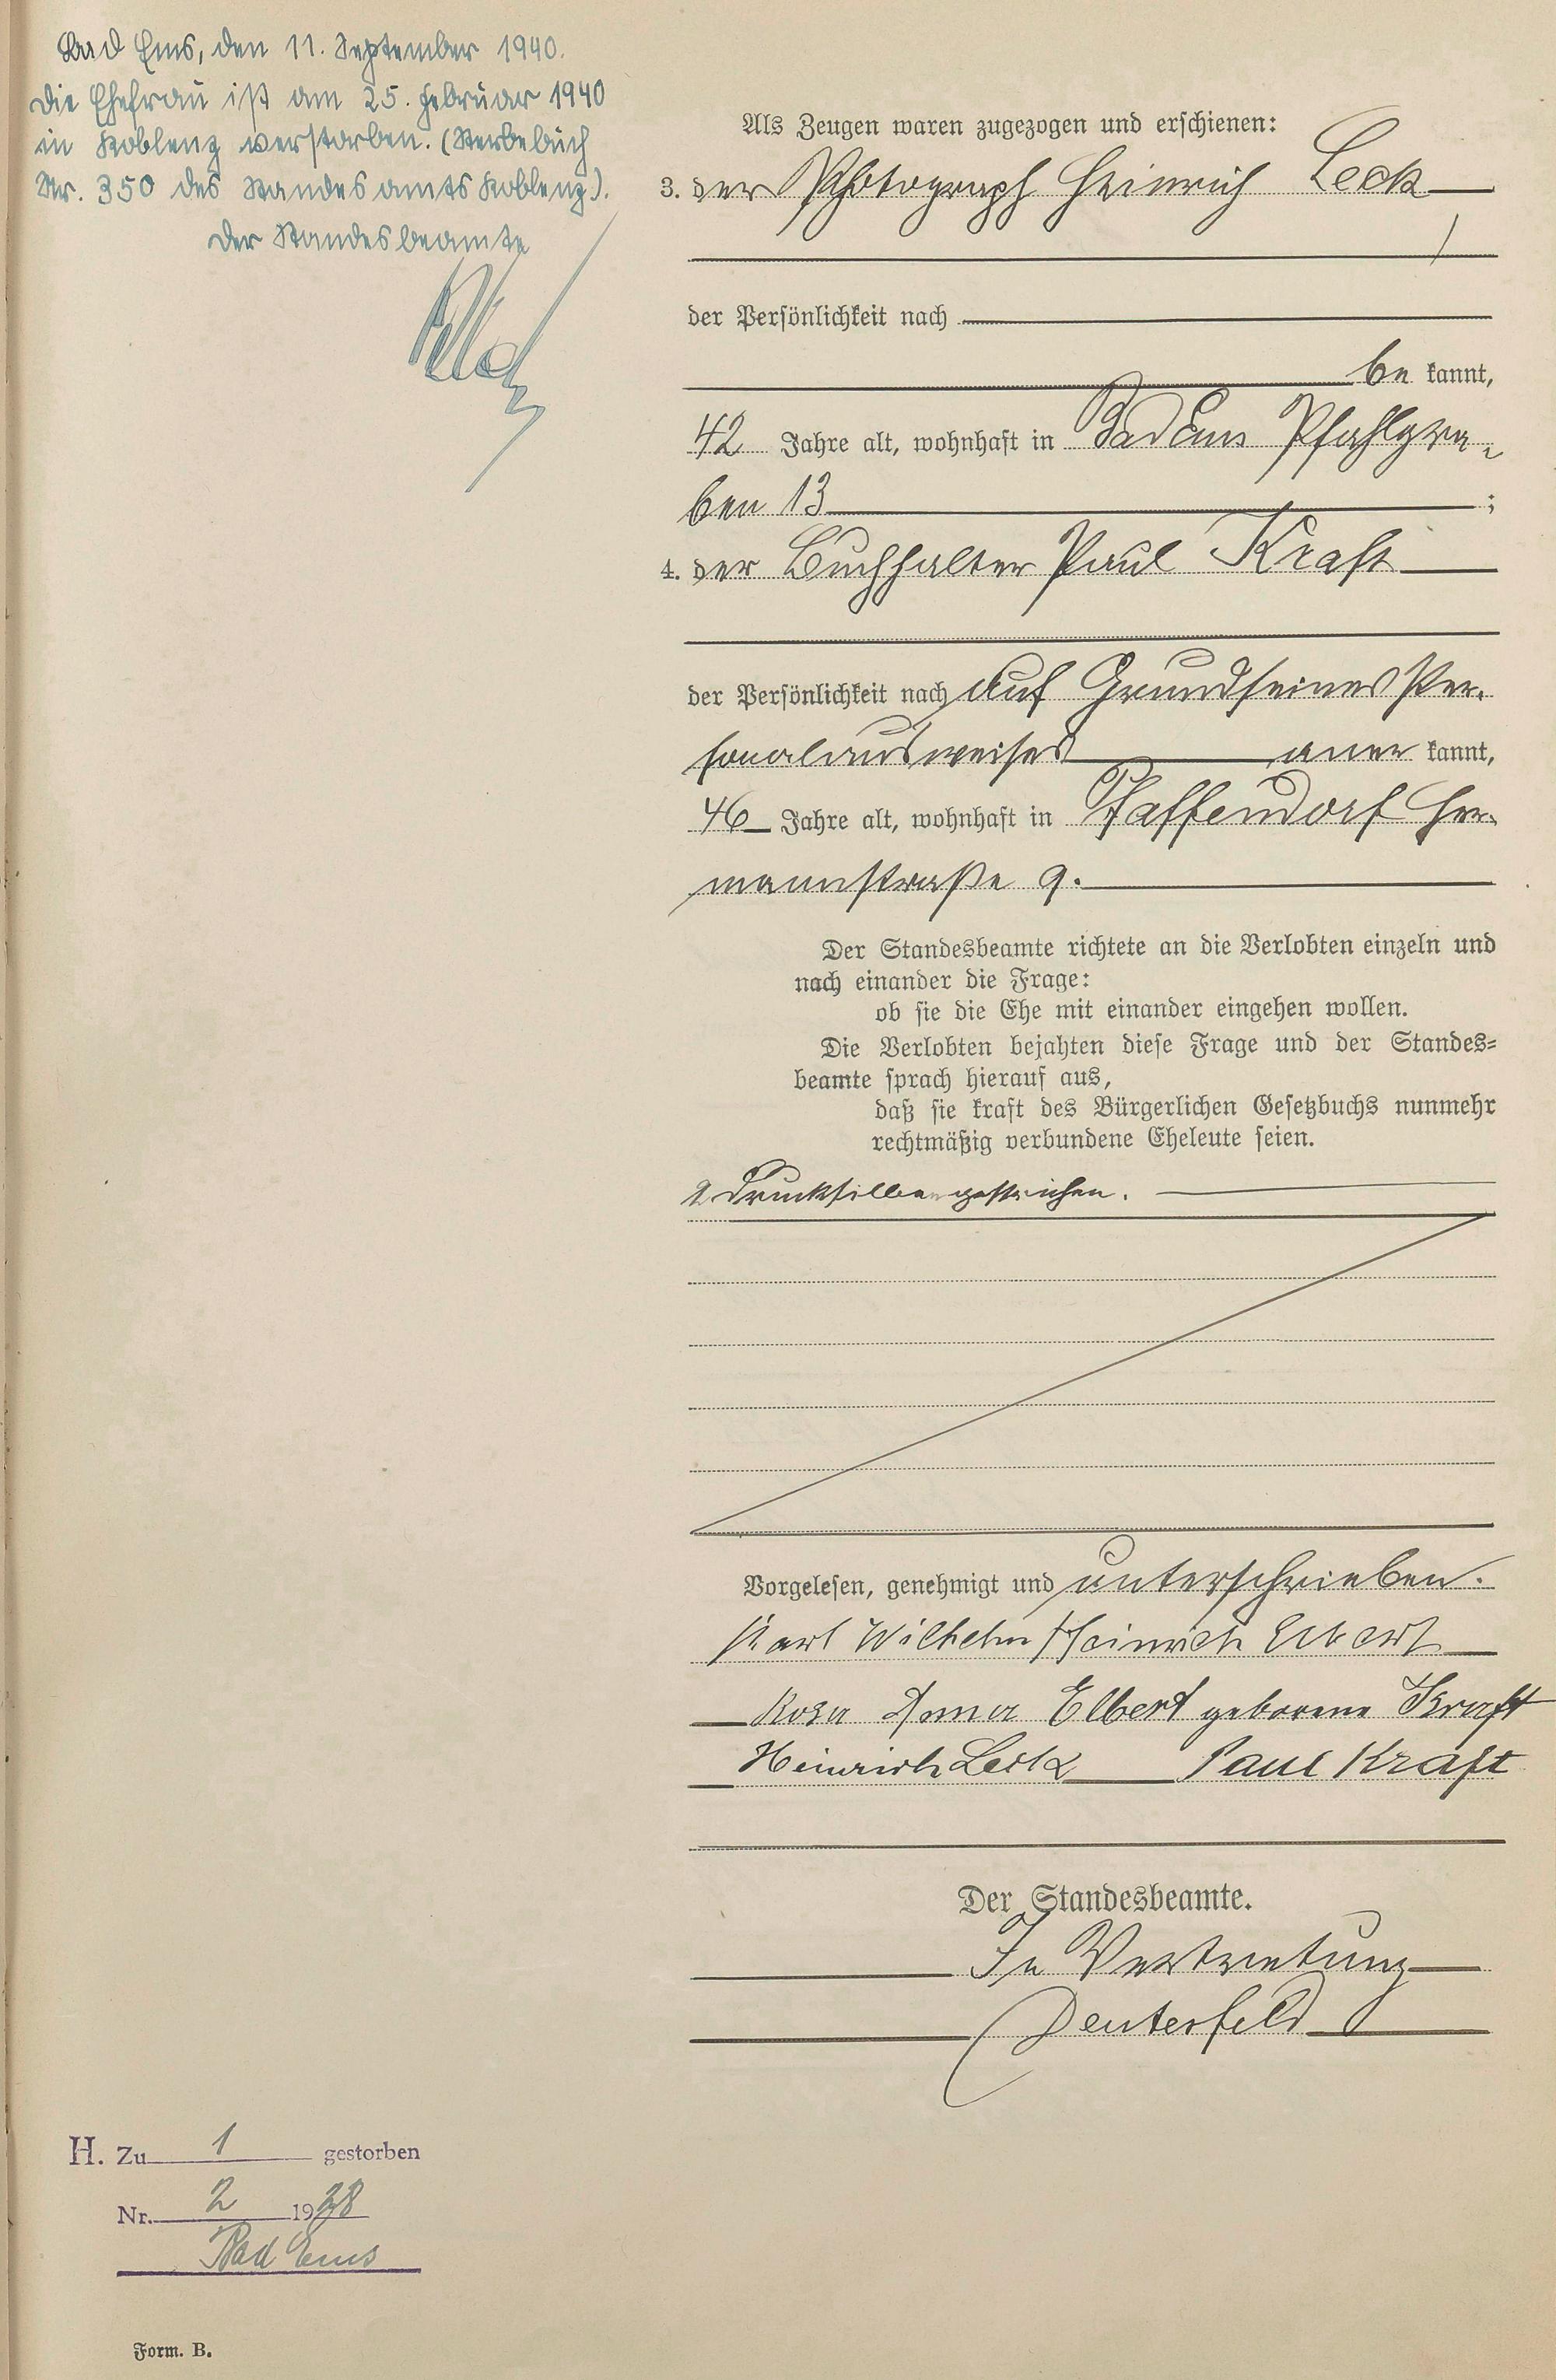 Bad Ems, den 11. September 1940.
Die Ehefrau ist am 25. Februar 1940
in Koblenz verstorben. (Sterbebuch
Nr. 350 des Standesamts Koblenz).
Der Standesbeamte
Als Zeugen waren zugezogen und erschienen:
3. der Photograph Heinrich Leck
der Persönlichkeit nach
be kannt,
42 Jahre alt, wohnhaft in Bad Ems Pfahlgra-
ben 13 ;
4. der Buchhalter Paul Kraft
der Persönlichkeit nach auf Grund seines Per-
sonalausweises aner kannt,
46 Jahre alt, wohnhaft in Pfaffendorf Her-
mannstraße 9.
Der Standesbeamte richtete an die Verlobten einzeln und
nach einander die Frage:
ob sie die Ehe mit einander eingehen wollen.
Die Verlobten bejahten diese Frage und der Standes=
beamte sprach hierauf aus,
daß sie kraft des Bürgerlichen Gesetzbuchs nunmehr
rechtmäßig verbundene Eheleute seien.
2 Drucksilben gestrichen.
Vorgelesen, genehmigt und unterschrieben.
Karl Wilhelm Heinrich Elbert
Rosa Anna Elbert geborene Kraft
Heinrich Leck Paul Kraft
Der Standesbeamte.
In Vertretung
Deuterfeld
H. Zu 1 gestorben
Nr. 2 1938
Bad Ems
Form. B.